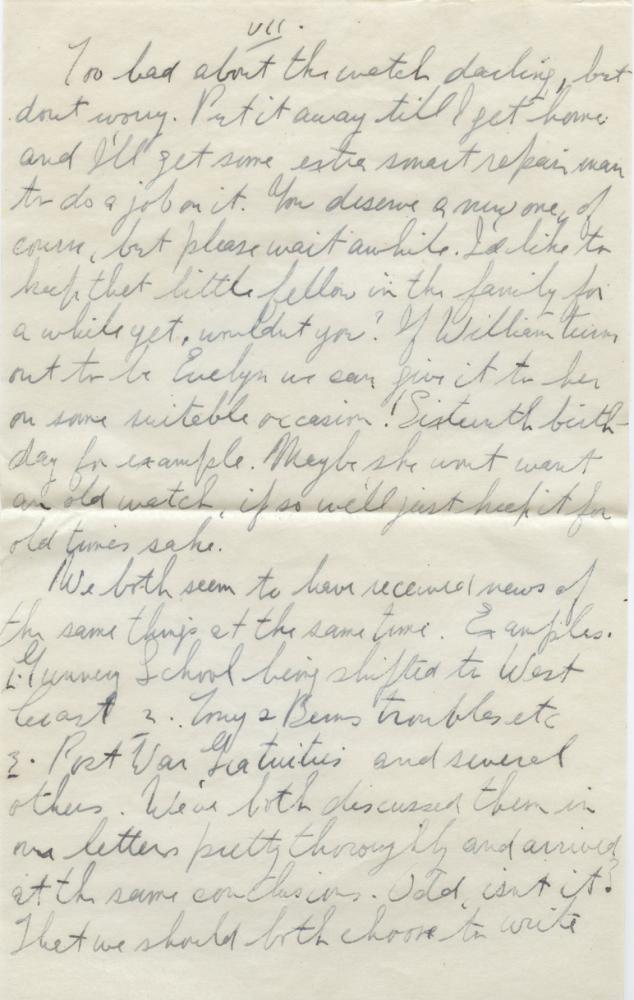 VII.
Too bad about the watch darling, but
dont worry. Put it away till I get home
and I'll get some extra smart repair man
to do a job on it. You deserve a new one, of
course, but please wait awhile. I'd like to
keep that little fellow in the family for
a while yet, wouldn't you? If William turns
out to be Evelyn we can give it to her
on some suitable occasion! Sixteenth birth-
day for example. Maybe she wont want
an old watch, if so we'll just keep it for
old times sake.
We both seem to have received news of
the same things at the same time. Examples.
1. Gunnery School being shifted to West
Coast 2. Tony & Berns troubles etc
3. Post War Gratuities and several
others. We've both discussed them in
our letters pretty thoroughly and arrived
at the same conclusions. Odd, isn't it?
That we should both choose to write